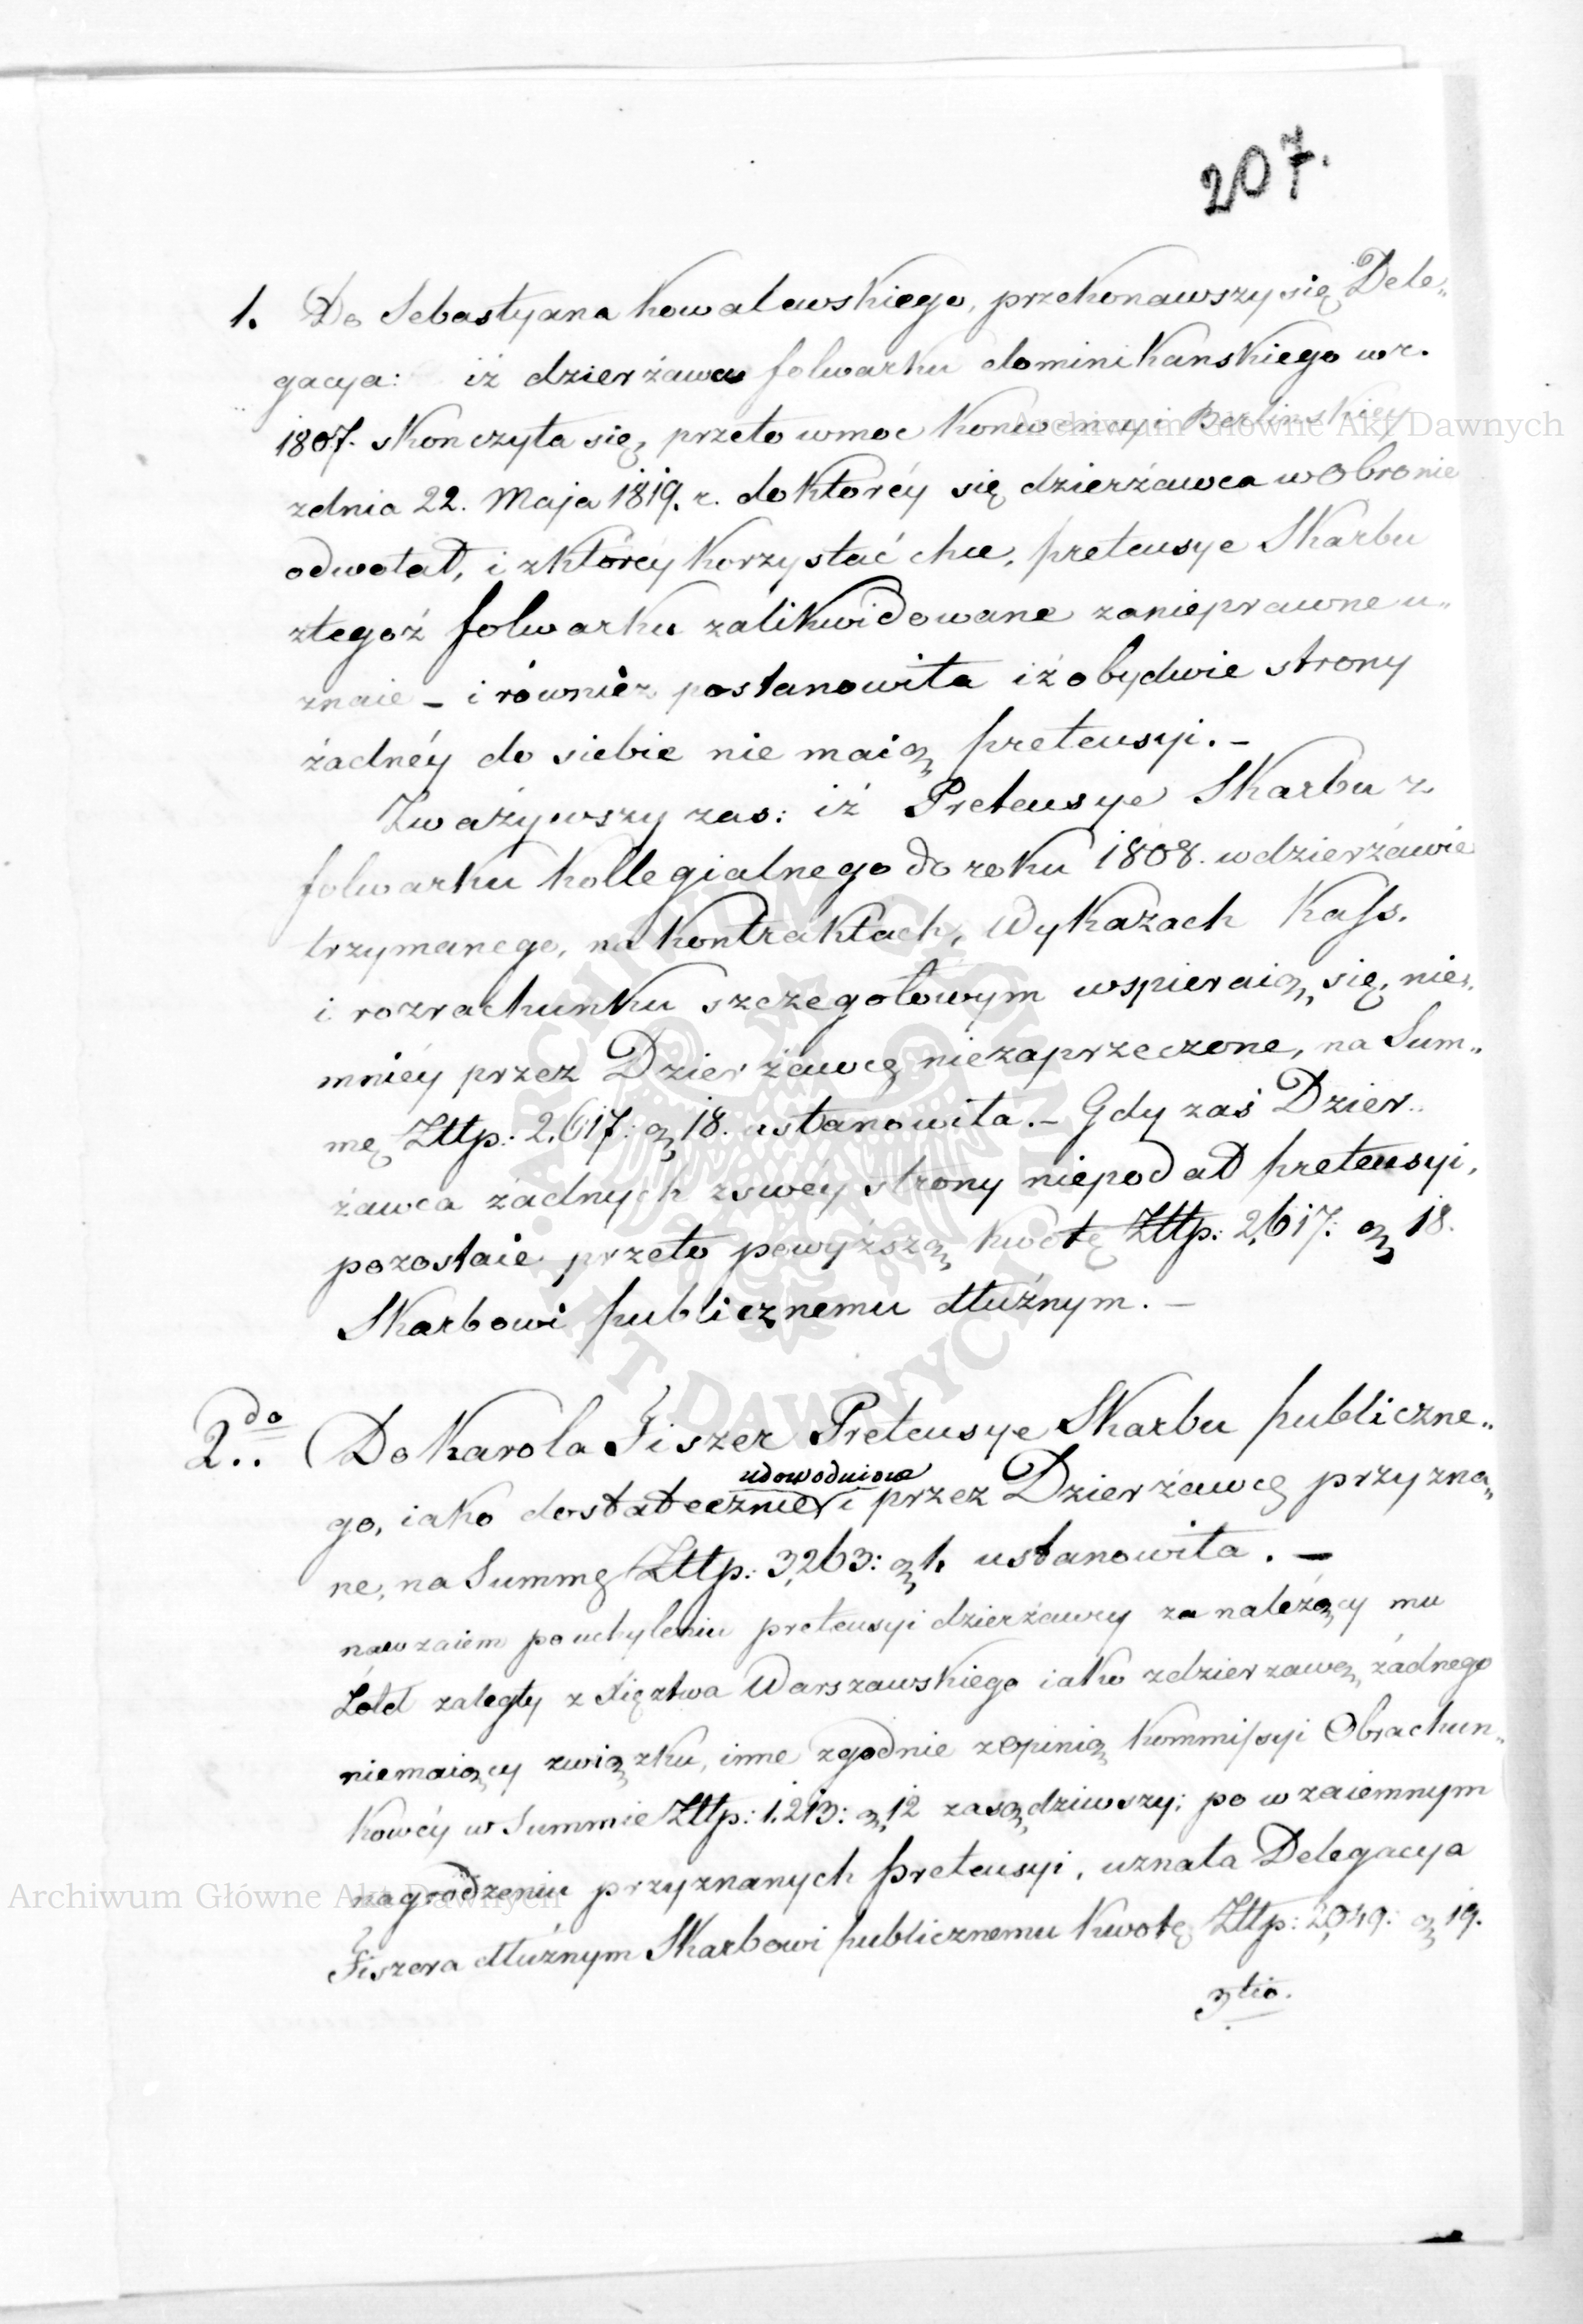 207.
1. Do Sebastyana Kowalewskiego, przekonawszy się Dele„
gacya: iż dzierżawa folwarku dominikanskiego w r.
1807. skonczyła się, przeto w moc Konwencyi Berlinskiey
z dnia 22. Maja 1819. r. do ktoréy się dzierżawca w Obronie
odwołał, i z ktoréy korzystać chce, pretensye Skarbu
z tegoż folwarku zalikwidowane za nieprawne u„
znaie – i równiéz postanowiła iż obydwie strony
żadnéy do siebie nie maią pretensyi. –
Zważywszy zas: iż Pretensye Skarbu z
folwarku kollegialnego do roku 1808. w dzierżawie
trzymanego, na Kontraktach, Wykazach Kass.
i rozrachunku szczegołowym wspieraią się, nie„
mniéy przez Dzierżawcę niezaprzeczone, na Sum„
mę Złtp: 2,617: g 18. ustanowiła. – Gdy zaś Dzier„
żawca żadnych z swéy strony niepodał pretensyi,
pozostaie przeto powyższą kwotę Złtp: 2,617: g 18.
Skarbowi publicznemu dłużnym. –
2do.. Do Karola Fiszer Pretensye Skarbu publiczne„
udowodnione
go, iako dostatecznie i przez Dzierżawcę przyzna„
ne, na Summę Złtp: 3,263: g 1. ustanowiła. –
nawzaiem po uchyleniu pretensyi dzierżawcy za należący mu
Żołd zaległy z Xięztwa Warszawskiego iako z dzierzawą żadnego
niemaiący związku, inne zgodnie z opinią Kommissyi Obrachun„
kowéy w Summie Złtp: 1,213: g 12 zasądziwszy: po wzaiemnym
nagrodzeniu przyznanych pretensyi, uznała Delegacya
Fiszera dłużnym Skarbowi publicznemu Kwotę Złtp: 2,049: g 19.
3tio.
Archiwum Główne Akt Dawnych
Archiwum Główne Akt Dawnych
ARCHIWUM GŁÓWNE AKT DAWNYCH